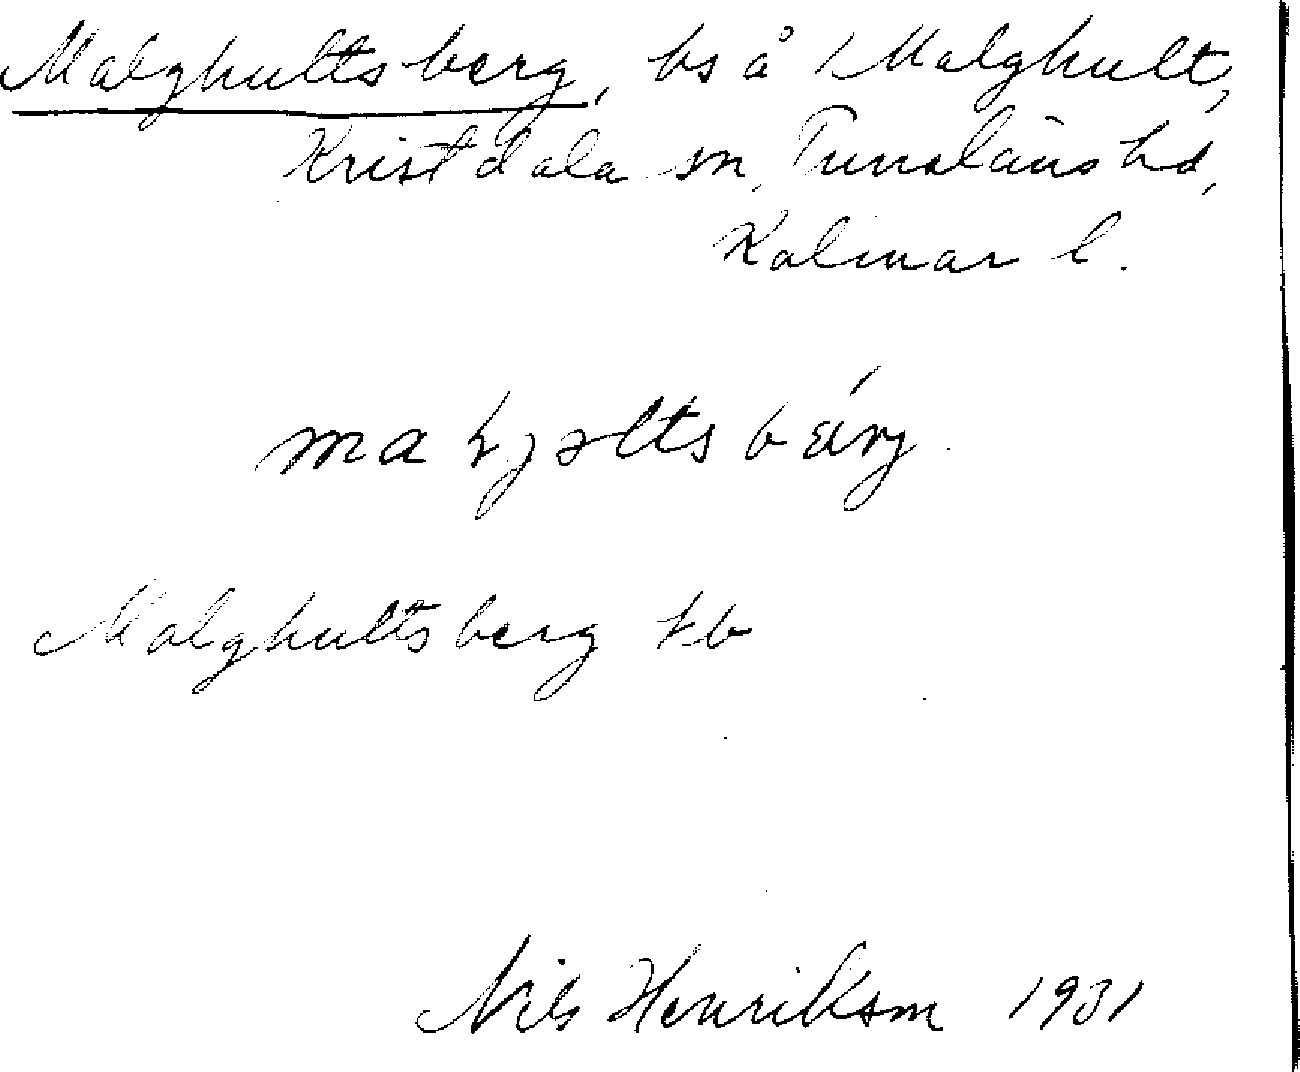 Malghultsberg, bs å 1 Malghult,
Kristdala sn, Tunaläns hd,
Kalmar l.
Malghultsberg kb
Nils Henrikson 1931